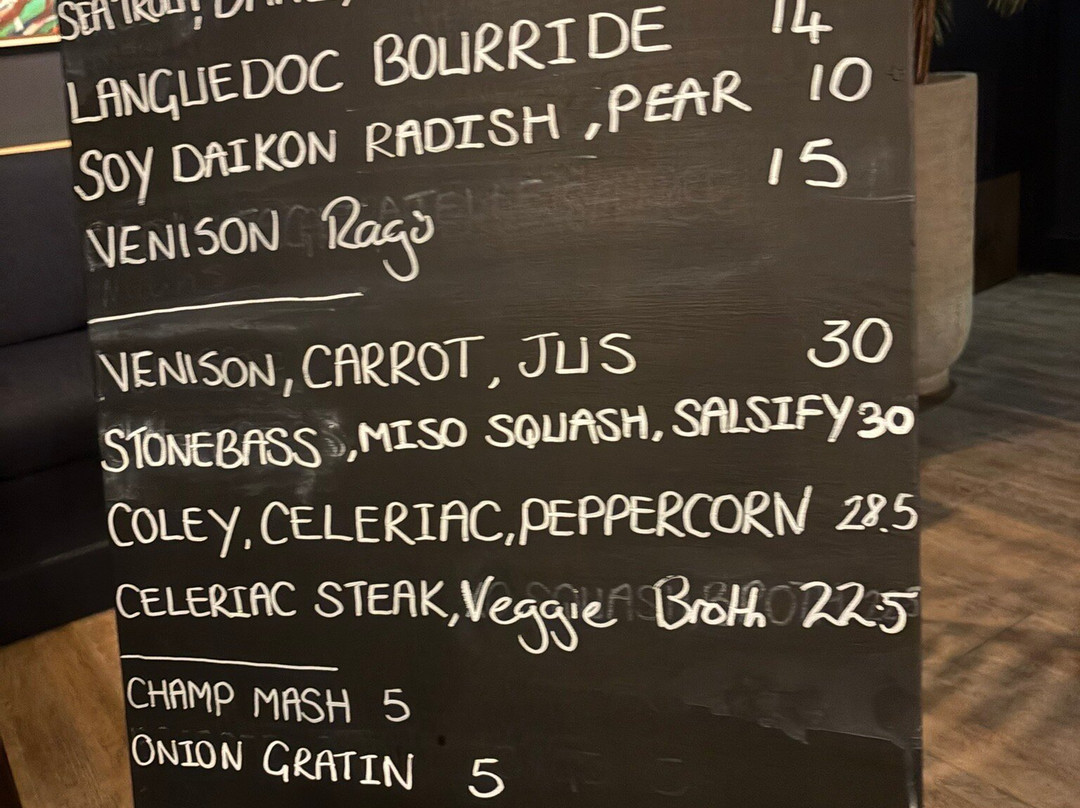 SEA TROUT,
LANGUEDOC BOURRIDE 14
SOY DAIKON RADISH , PEAR 10
VENISON Ragù 15
VENISON, CARROT, JUS 30
STONEBASS, MISO SQUASH, SALSIFY 30
COLEY, CELERIAC, PEPPERCORN 28.5
CELERIAC STEAK, Veggie Broth 22.5
CHAMP MASH 5
ONION GRATIN 5